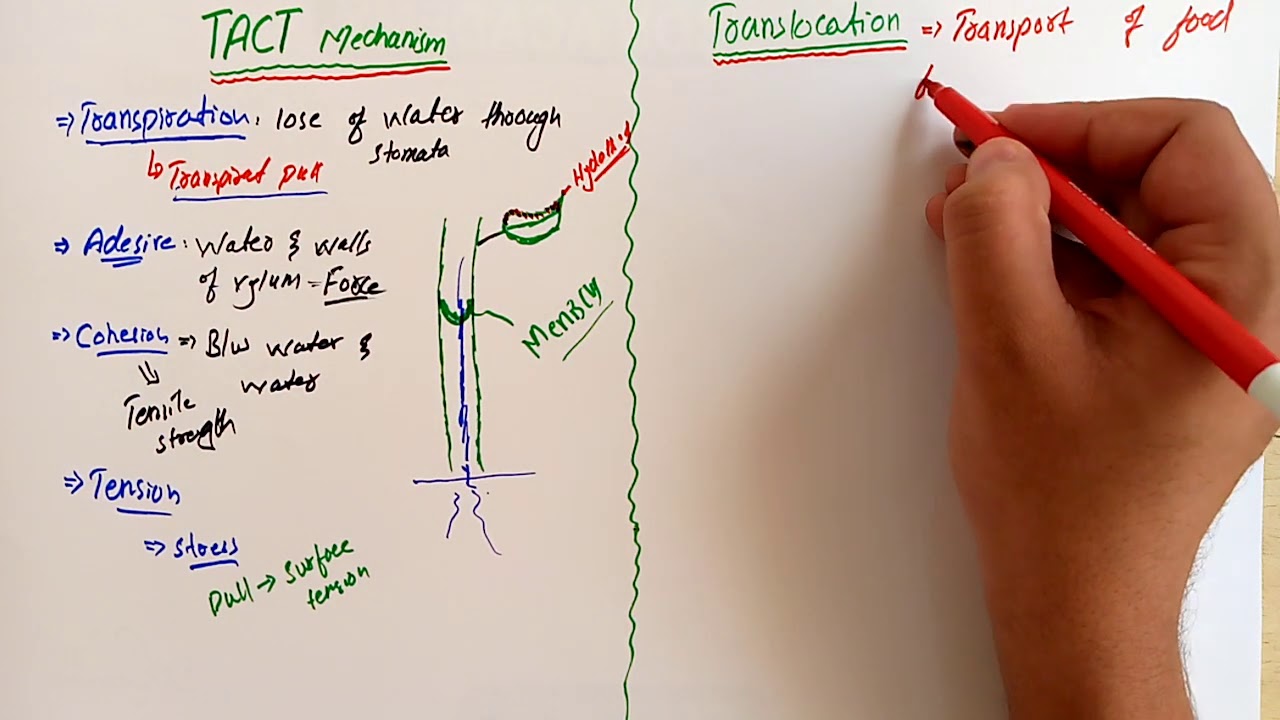 TACT Mechanism
⇒ Transpiration: lose of water through
stomata
↳ Transpirat pull
⇒ Adesire: water & walls
of xylum = Force
⇒ Cohesion ⇒ B/w water &
water
Tensile
strength
⇒ Tension
⇒ stress
pull → surface
tension
Translocation ⇒ Transport of food